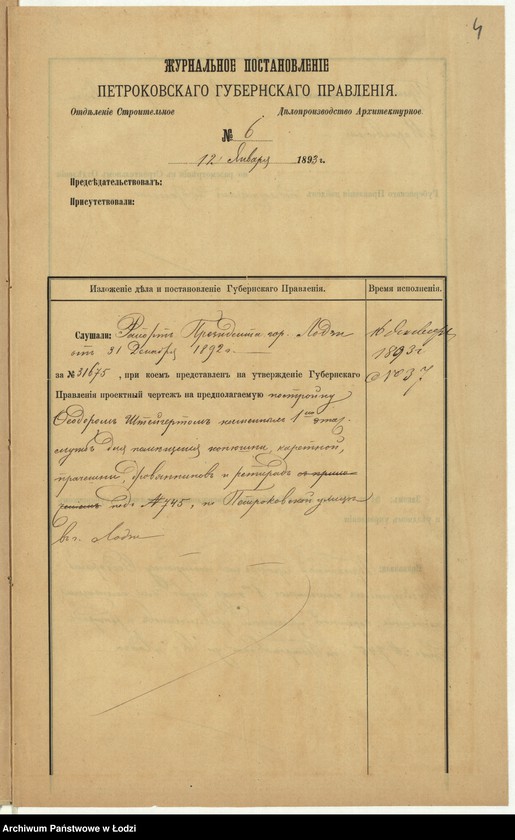 4
ЖУРНАЛЬНОЕ ПОСТАНОВЛЕНІЕ
ПЕТРОКОВСКАГО ГУБЕРНСКАГО ПРАВЛЕНІЯ.
Отдѣленіе Строительное Дѣлопроизводство Архитектурное
№ 6
12 Января 1893 г.
Предсѣдательствовалъ:
Присутствовали:
Изложеніе дѣла и постановленіе Губернскаго Правленія.
Время исполненія.
Слушали: Рапортъ Президента гор. Лодзи
отъ 31 Декабря 1892 г.
за № 31675, при коемъ представленъ на утвержденіе Губернскаго
Правленія проектный чертежъ на предполагаемую постройку
Ѳеодоромъ Штейгертомъ 1 этаж.
службъ для помѣщенія конюшни, каретной,
прачешни, дровянниковъ и ретирадъ
подъ № 745, по Петроковской улицѣ
въ г. Лодзи
1893 г
№ 37
Archiwum Państwowe w Łodzi